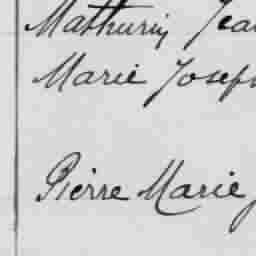 Mathurin Jean
Marie Joseph
Pierre Marie